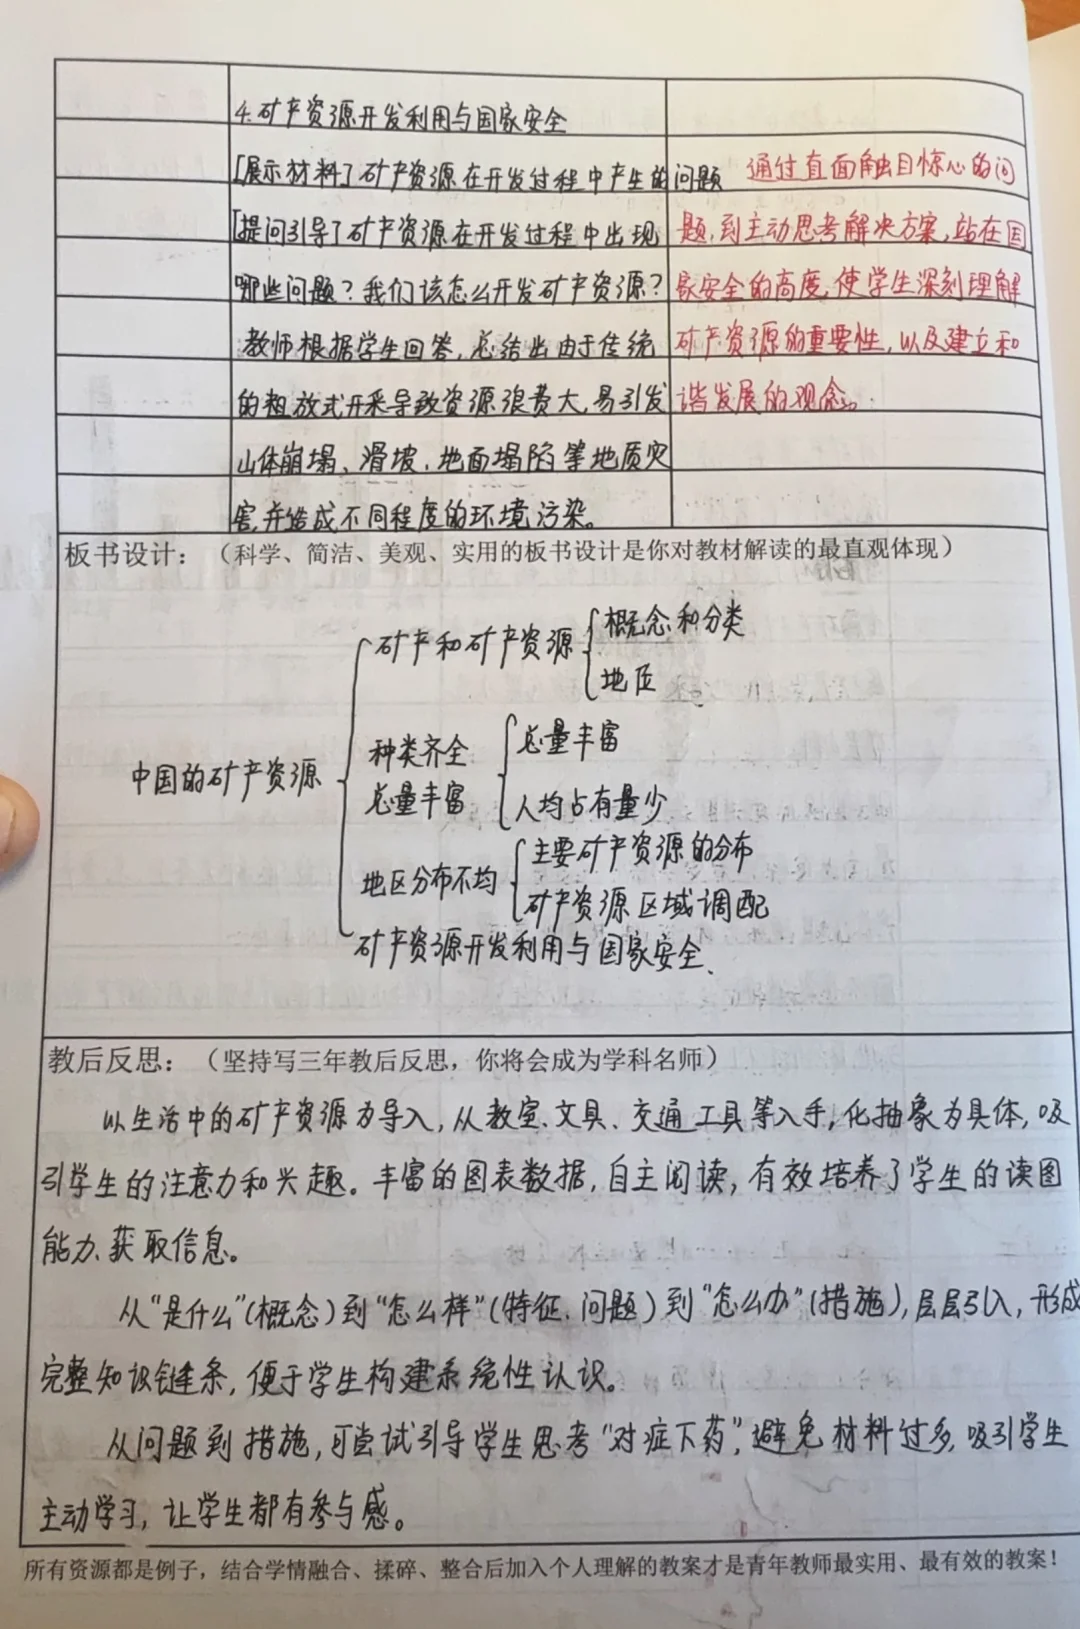 4.矿产资源开发利用与国家安全
[展示材料]矿产资源在开发过程中产生的问题 通过直面触目惊心的问
[提问引导]矿产资源在开发过程中出现 题,到主动思考解决方案,站在国
哪些问题?我们该怎么开发矿产资源? 家安全的高度,使学生深刻理解
教师根据学生回答,总结出由于传统 矿产资源的重要性,以及建立和
的粗放式开采导致资源浪费大,易引发 谐发展的观念。
山体崩塌、滑坡、地面塌陷等地质灾
害,并造成不同程度的环境污染。
板书设计:(科学、简洁、美观、实用的板书设计是你对教材解读的最直观体现)
矿产和矿产资源 概念和分类
地位
种类齐全 总量丰富
中国的矿产资源
总量丰富 人均占有量少
主要矿产资源的分布
地区分布不均
矿产资源区域调配
矿产资源开发利用与国家安全.
教后反思:(坚持写三年教后反思,你将会成为学科名师)
以生活中的矿产资源为导入,从教室、文具、交通工具等入手,化抽象为具体,吸
引学生的注意力和兴趣。丰富的图表数据,自主阅读,有效培养了学生的读图
能力、获取信息。
从“是什么”(概念)到“怎么样”(特征、问题)到“怎么办”(措施),层层引入,形成
完整知识链条,便于学生构建系统性认识。
从问题到措施,可尝试引导学生思考“对症下药”,避免材料过多,吸引学生
主动学习,让学生都有参与感。
所有资源都是例子,结合学情融合、揉碎、整合后加入个人理解的教案才是青年教师最实用、最有效的教案!